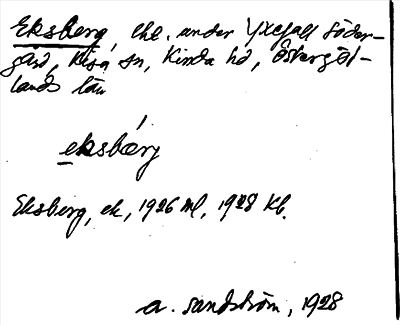 Eksberg, lht. under Yxefall Söder-
gård, Kisa sn, Kinda hd, Östergöt-
lands län
eksbærj
Eksberg, ek, 1926 Ml, 1928 Kb.
A. Sandström, 1928